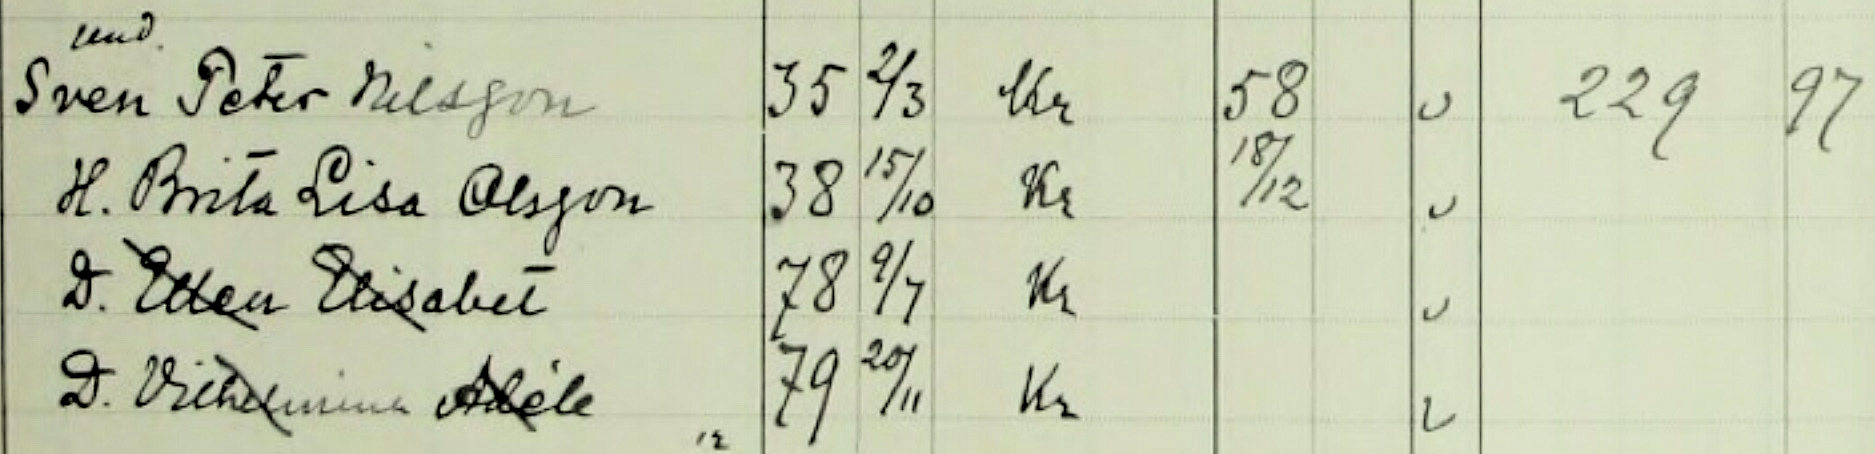 und.
Sven Peter Nilsson 35 2/3 Kr 58 v 229 97
H. Brita Lisa Olsson 38 15/10 Kr 18/12 v
D. Ellen Elisabet 78 9/7 Kr v
D. Vilhelmina Adéle 79 20/11 Kr v